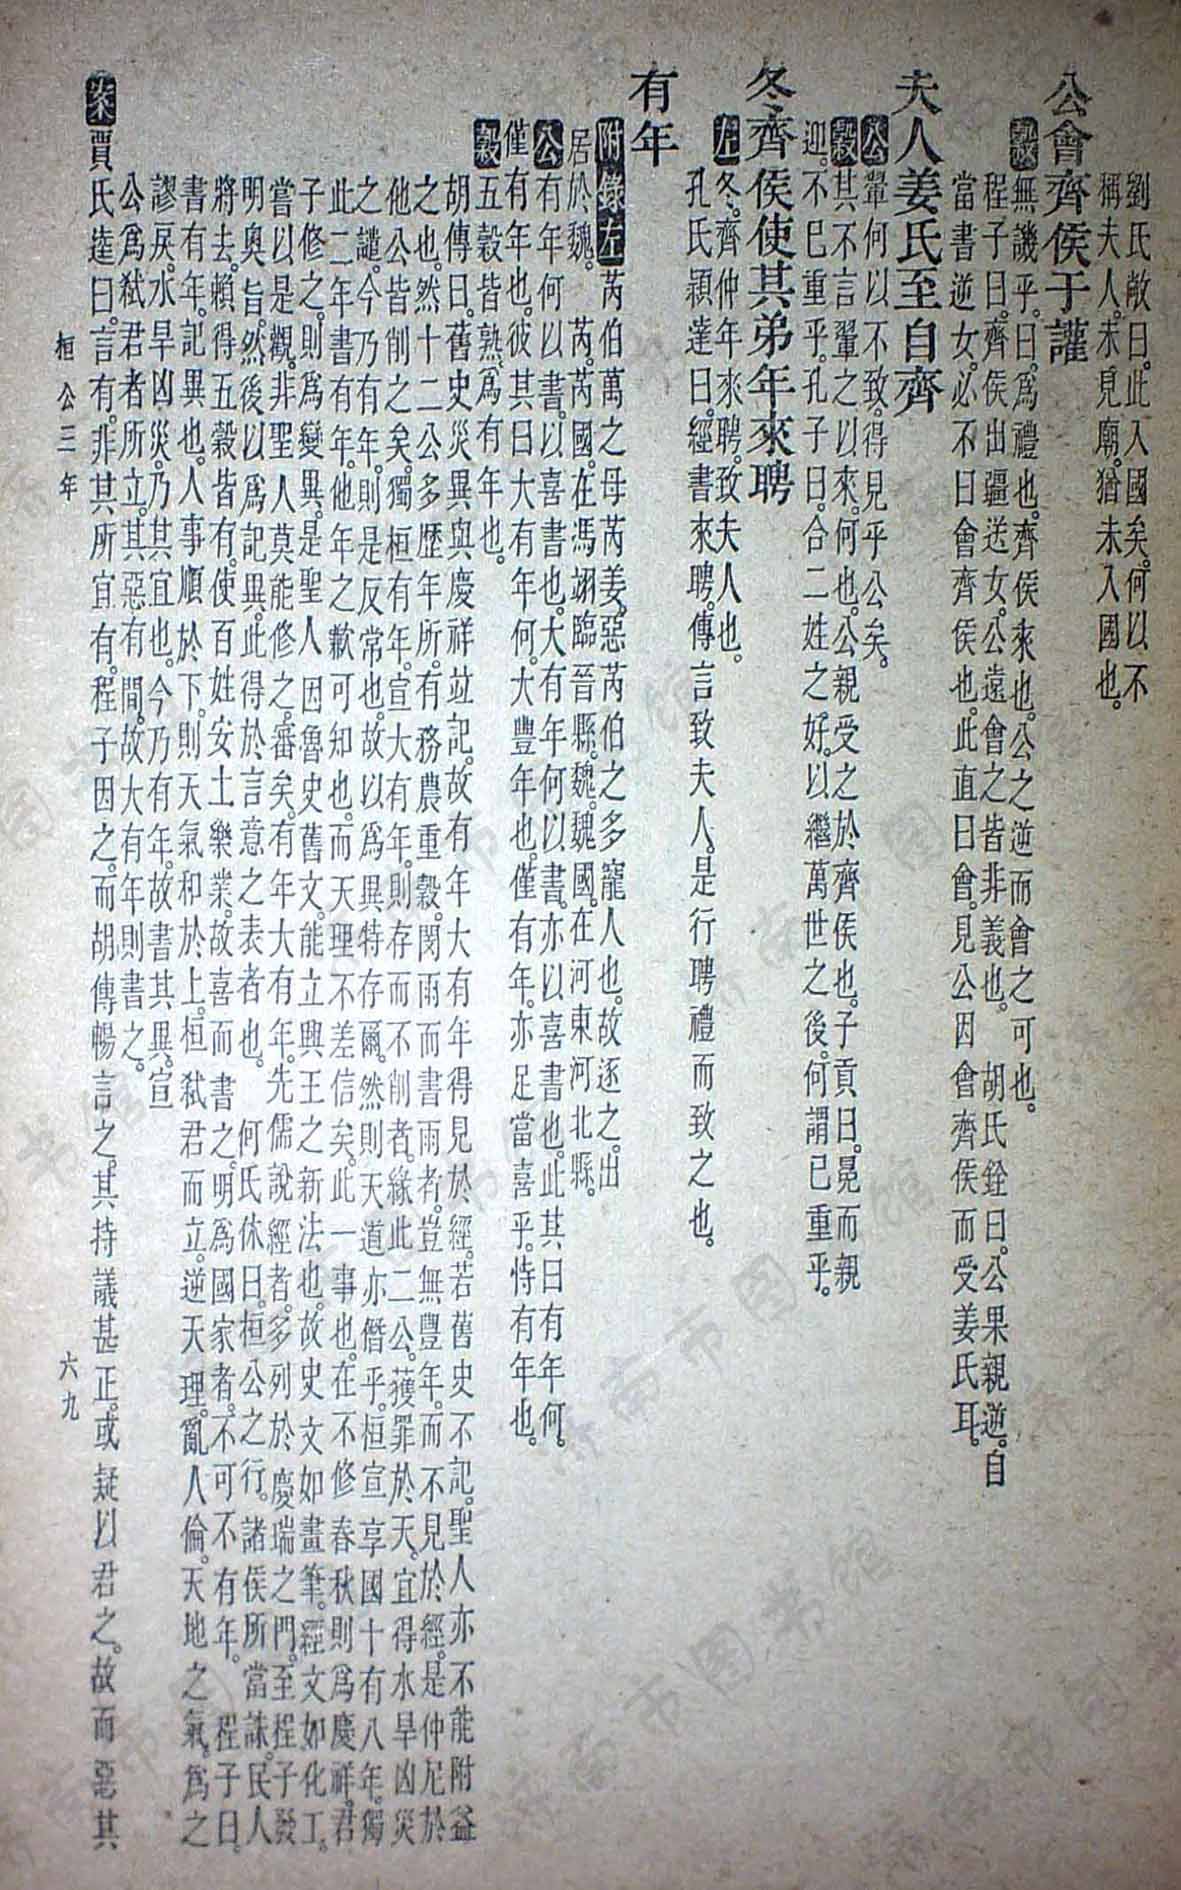 劉氏敞曰。此入國矣。何以不
稱夫人。未見廟。猶未入國也。
公會齊侯于讙
穀無譏乎。曰。爲禮也。齊侯來也。公之逆而會之可也。
程子曰。齊侯出疆送女。公遠會之。皆非義也。 胡氏銓曰。公果親逆。自
當書逆女。必不曰會齊侯也。此直曰會。見公因會齊侯而受姜氏耳。
夫人姜氏至自齊
公翬何以不致。得見乎公矣。
穀其不言翬之以來。何也。公親受之於齊侯也。子貢曰。冕而親
迎。不已重乎。孔子曰。合二姓之好。以繼萬世之後。何謂已重乎。
冬齊侯使其弟年來聘
左冬。齊仲年來聘。致夫人也。
孔氏穎達曰。經書來聘。傳言致夫人。是行聘禮而致之也。
有年
附錄左芮伯萬之母芮姜。惡芮伯之多寵人也。故逐之。出
居於魏。芮。芮國。在馮翊臨晉縣。魏。魏國。在河東河北縣。
公有年何以書。以喜書也。大有年何以書。亦以喜書也。此其曰有年何。
僅有年也。彼其曰大有年何。大豐年也。僅有年。亦足當喜乎。恃有年也。
穀五穀皆熟。爲有年也。
胡傳曰。舊史災異與慶祥竝記。故有年大有年得見於經。若舊史不記。聖人亦不能附益
之也。然十二公多歷年所。有務農重穀。閔雨而書雨者。豈無豐年。而不見於經。是仲尼於
他公皆削之矣。獨桓有年。宣大有年。則存而不削者。緣此二公。獲罪於天。宜得水旱凶災
之譴。今乃有年。則是反常也。故以爲異特存爾。然則天道亦僭乎。桓宣享國十有八年。獨
此二年書有年。他年之歉可知也。而天理不差信矣。此一事也。在不修春秋則爲慶祥。君
子修之。則爲變異。是聖人因魯史舊文。能立興王之新法也。故史文如畫筆。經文如化工。
嘗以是觀。非聖人莫能修之。審矣。有年大有年。先儒說經者。多列於慶瑞之門。至程子發
明奧旨。然後以爲記異。此得於言意之表者也。 何氏休曰。桓公之行。諸侯所當誅。民人
將去。賴得五穀皆有。使百姓安土樂業。故喜而書之。明爲國家者。不可不有年。 程子曰。
書有年。記異也。人事順於下。則天氣和於上。桓弒君而立。逆天理。亂人倫。天地之氣。爲之
謬戾。水旱凶災。乃其宜也。今乃有年。故書其異。宣
公爲弒君者所立。其惡有間。故大有年則書之。
案賈氏逵曰。言有。非其所宜有。程子因之。而胡傳暢言之。其持議甚正。或疑以君之。故而惡其
桓公三年
六九